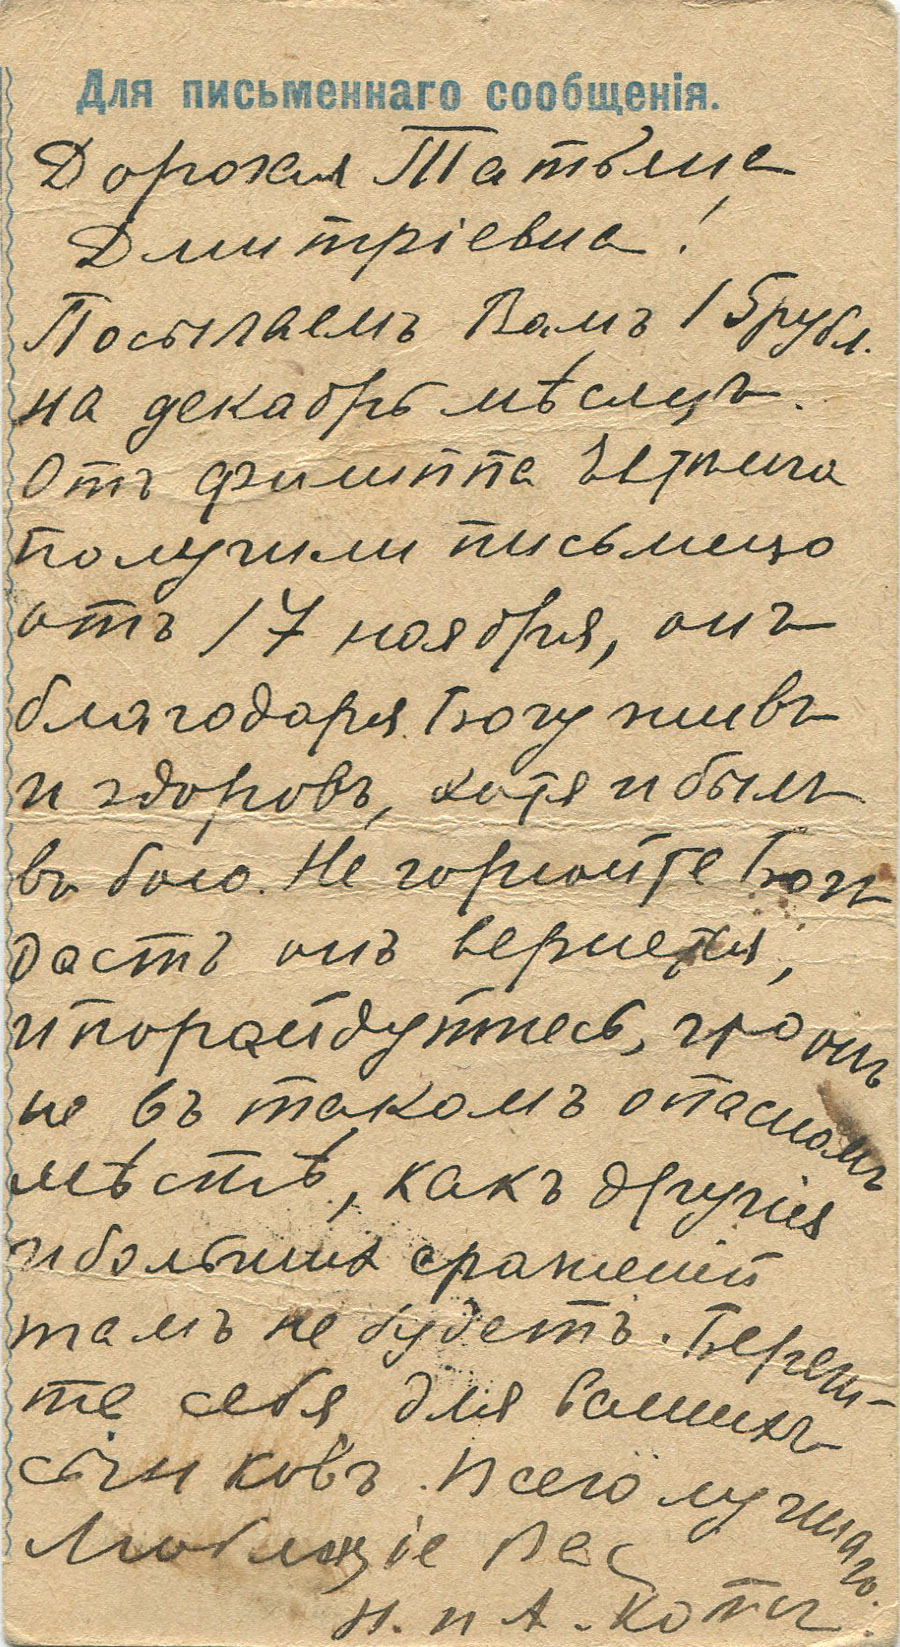 Для письменнаго сообщенія.
Дорогая Татьяна
Дмитріевна!
Посылаемъ Вамъ 15 рубл.
на декабрь мѣсяцъ.
Отъ Филиппа
получили письмецо
отъ 17 ноября, онъ
благодаря Богу живъ
и здоровъ, хотя и былъ
въ бою. Не горюйте Богъ
дастъ онъ вернется,
и порадуйтесь, что онъ
не въ такомъ опасномъ
мѣстѣ, какъ другія
и большихъ сраженій
тамъ не будетъ. Береги-
те себя для вашихъ
сынковъ. Всего лучшаго.
Любящіе Вас
Н. и А. Коты